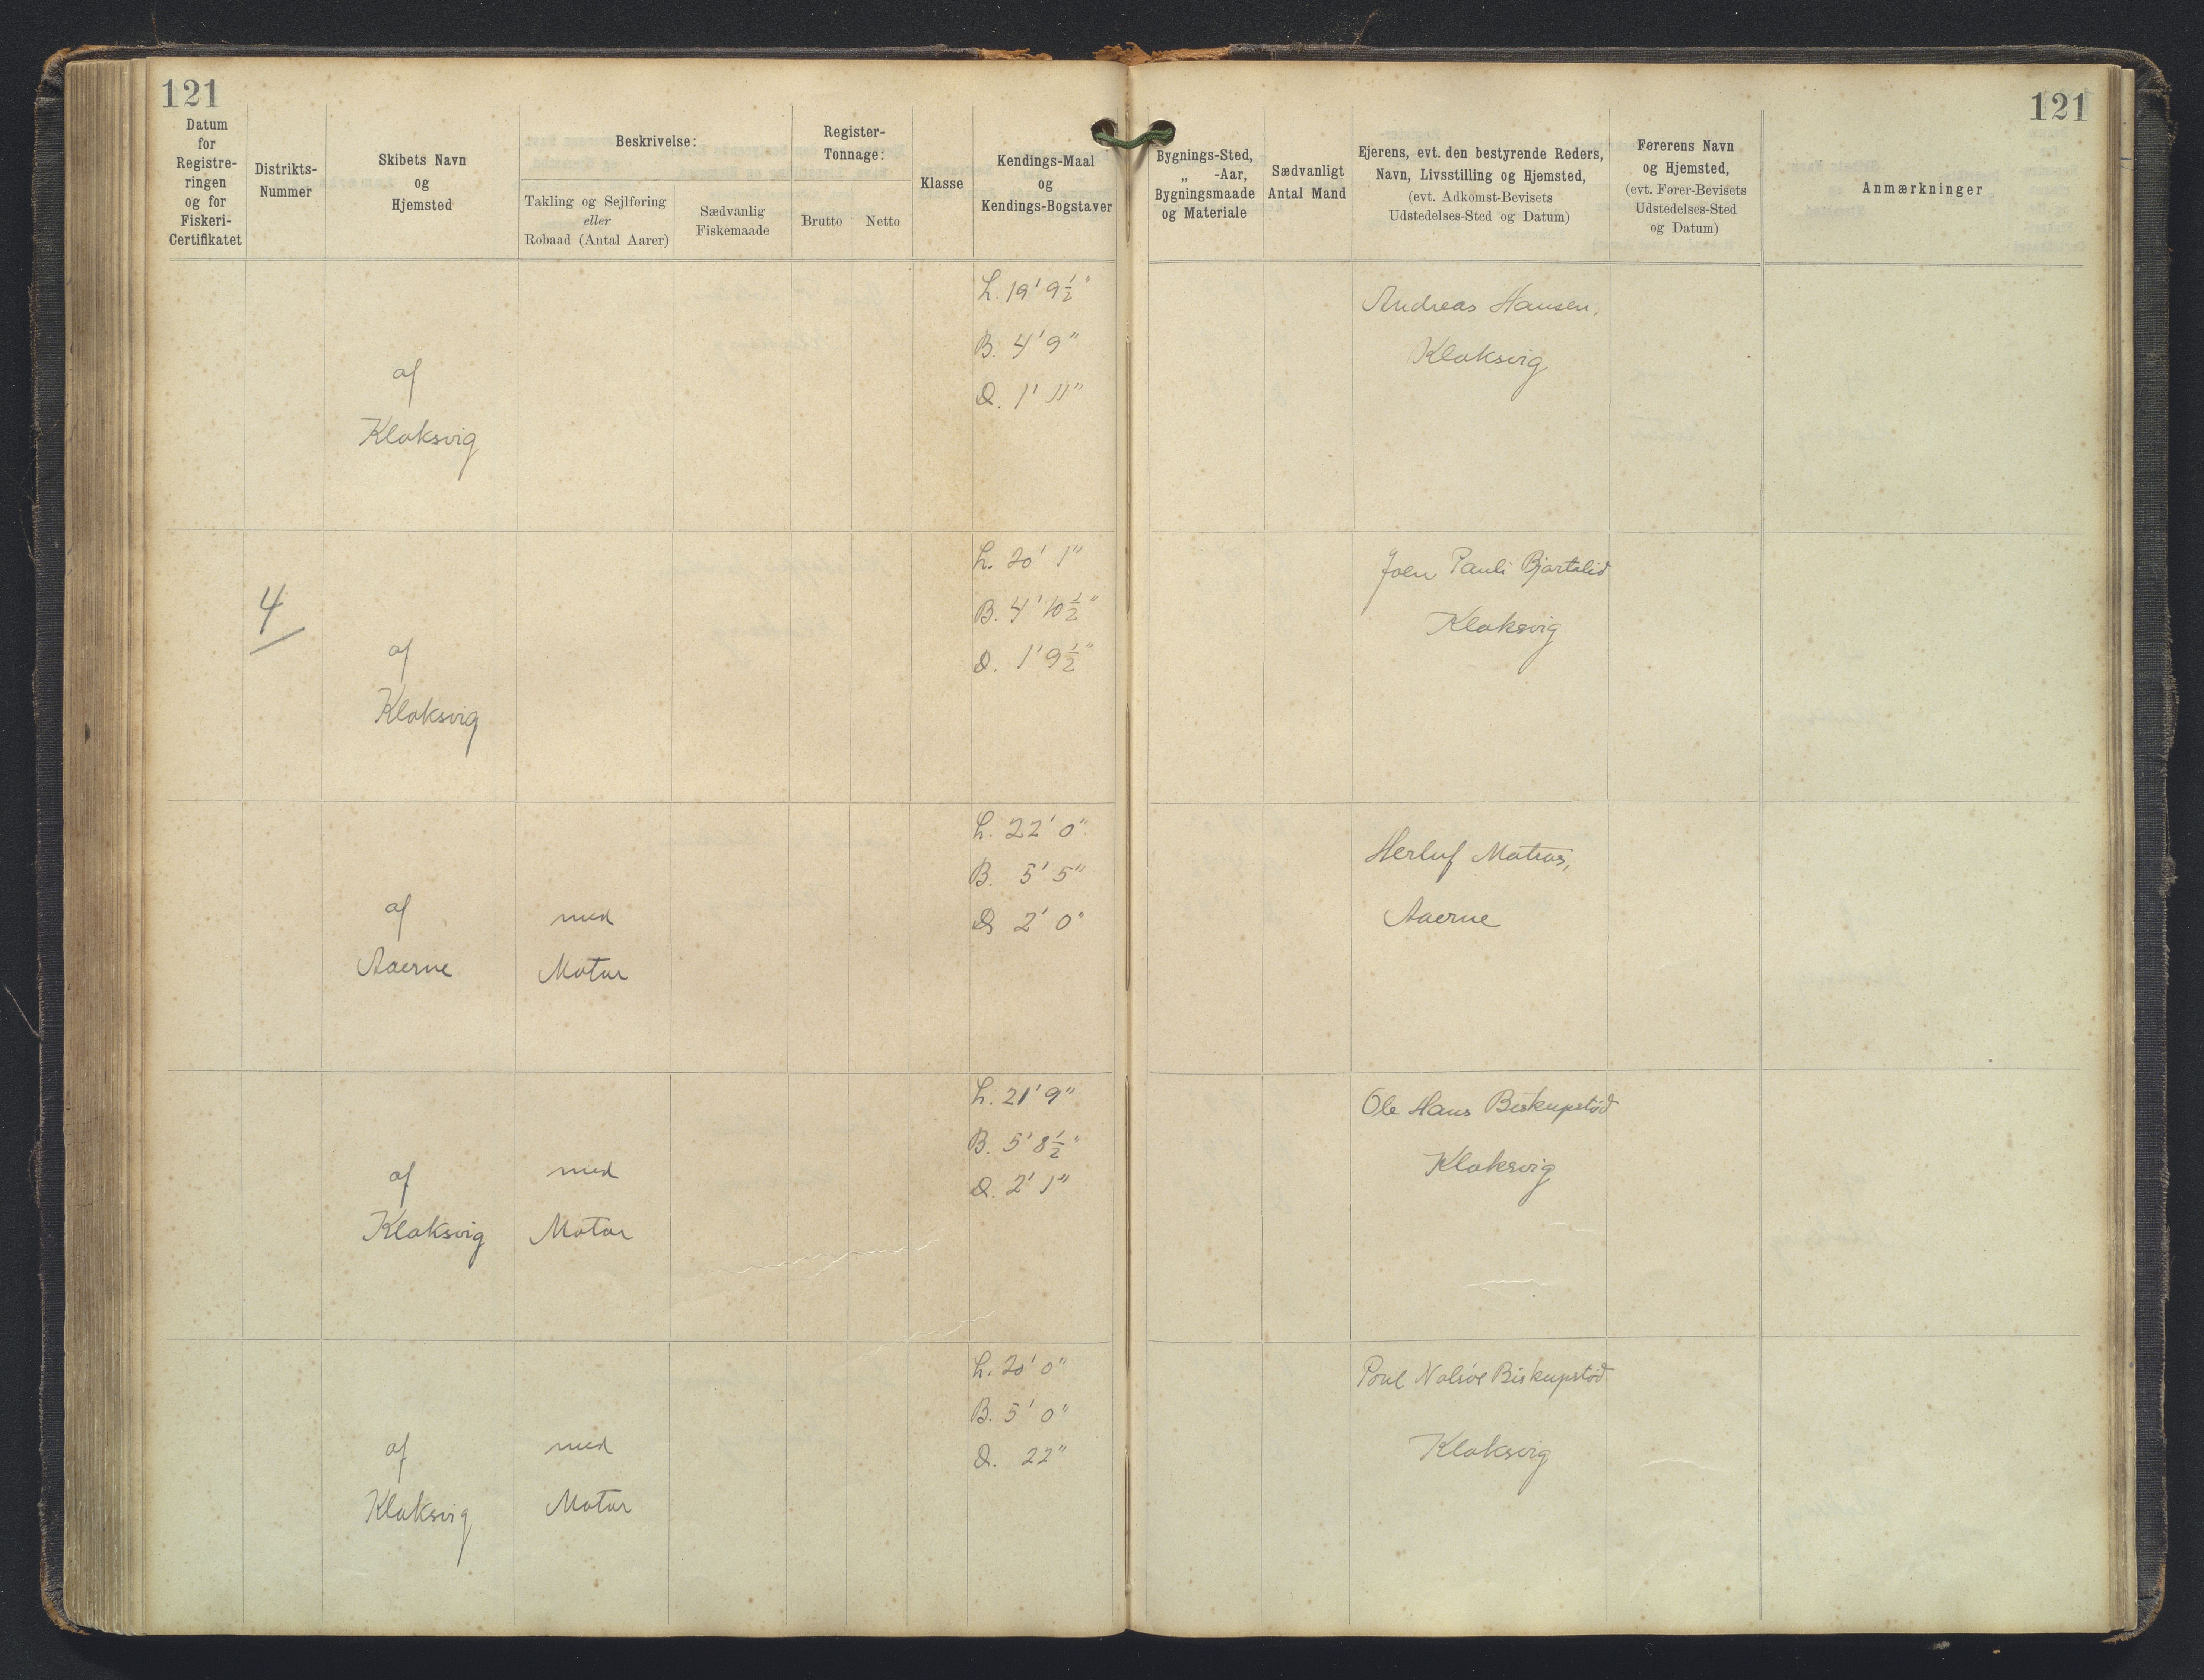 121
121
Datum
for
Registre-
ringen
og for
Fiskeri-
Certifikatet
Distrikts-
Nummer
Skibets Navn
og
Hjemsted
Beskrivelse:
Takling og Sejlføring
eller
Robaad (Antal Aarer)
Sædvanlig
Fiskemaade
Register-
Tonnage:
Brutto
Netto
Klasse
Kendings-Maal
og
Kendings-Bogstaver
Bygnings-Sted,
„ -Aar,
Bygningsmaade
og Materiale
Sædvanligt
Antal Mand
Ejerens, evt. den bestyrende Reders,
Navn, Livsstilling og Hjemsted,
(evt. Adkomst-Bevisets
Udstedelses-Sted og Datum)
Førerens Navn
og Hjemsted,
(evt. Fører-Bevisets
Udstedelses-Sted
og Datum)
Anmærkninger
af
Klaksvig
L. 19' 9½"
B. 4' 9"
D. 1' 11"
Andreas Hansen,
Klaksvig
4
af
Klaksvig
L. 20' 1"
B. 4' 10½"
D. 1' 9½"
Joen Pauli Bjartalid
Klaksvig
af
Aaerne
med
Motor
L. 22' 0"
B. 5' 5"
D 2' 0"
Herluf Matras,
Aaerne
af
Klaksvig
med
Motor
L. 21' 9"
B. 5' 8½"
D. 2' 1"
Ole Hans Biskupstöð
Klaksvig
af
Klaksvig
med
Motor
L. 20' 0"
B. 5' 0"
D. 22"
Poul Nolsöe Biskupstöð
Klaksvig